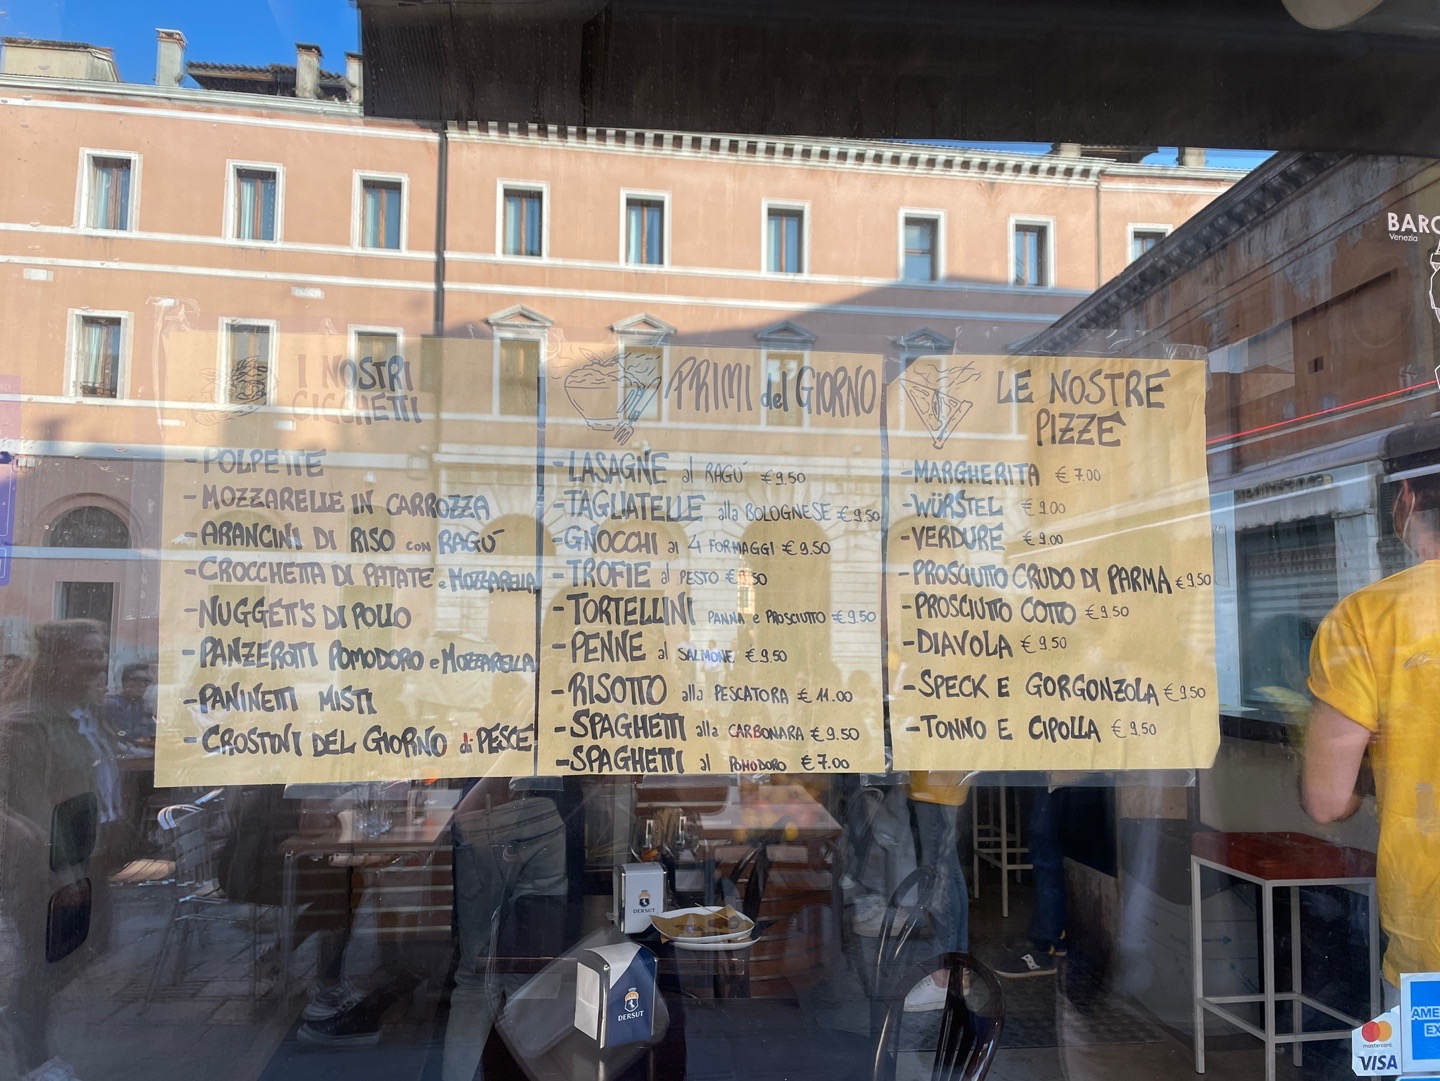 BARC
Venezia
I NOSTRI
CICCHETTI
- POLPETTE
- MOZZARELLE IN CARROZZA
- ARANCINI DI RISO con RAGÚ
- CROCCHETTA DI PATATE e MOZZARELLA
- NUGGET'S DI POLLO
- PANZEROTTI POMODORO e MOZZARELLA
- PANINETTI MISTI
- CROSTINI DEL GIORNO di PESCE
PRIMI del GIORNO
- LASAGNE al RAGÚ €9.50
- TAGLIATELLE alla BOLOGNESE €9.50
- GNOCCHI ai 4 FORMAGGI €9.50
- TROFIE al PESTO €9.50
- TORTELLINI PANNA e PROSCIUTTO €9.50
- PENNE al SALMONE €9.50
- RISOTTO alla PESCATORA €11.00
- SPAGHETTI alla CARBONARA €9.50
- SPAGHETTI al POMODORO €7.00
LE NOSTRE
PIZZE
- MARGHERITA €7.00
- WÜRSTEL €9.00
- VERDURE €9.00
- PROSCIUTTO CRUDO DI PARMA €9,50
- PROSCIUTTO COTTO €9.50
- DIAVOLA €9,50
- SPECK E GORGONZOLA €9,50
- TONNO E CIPOLLA €9,50
DERSUT
DERSUT
AME
EX
mastercard
VISA